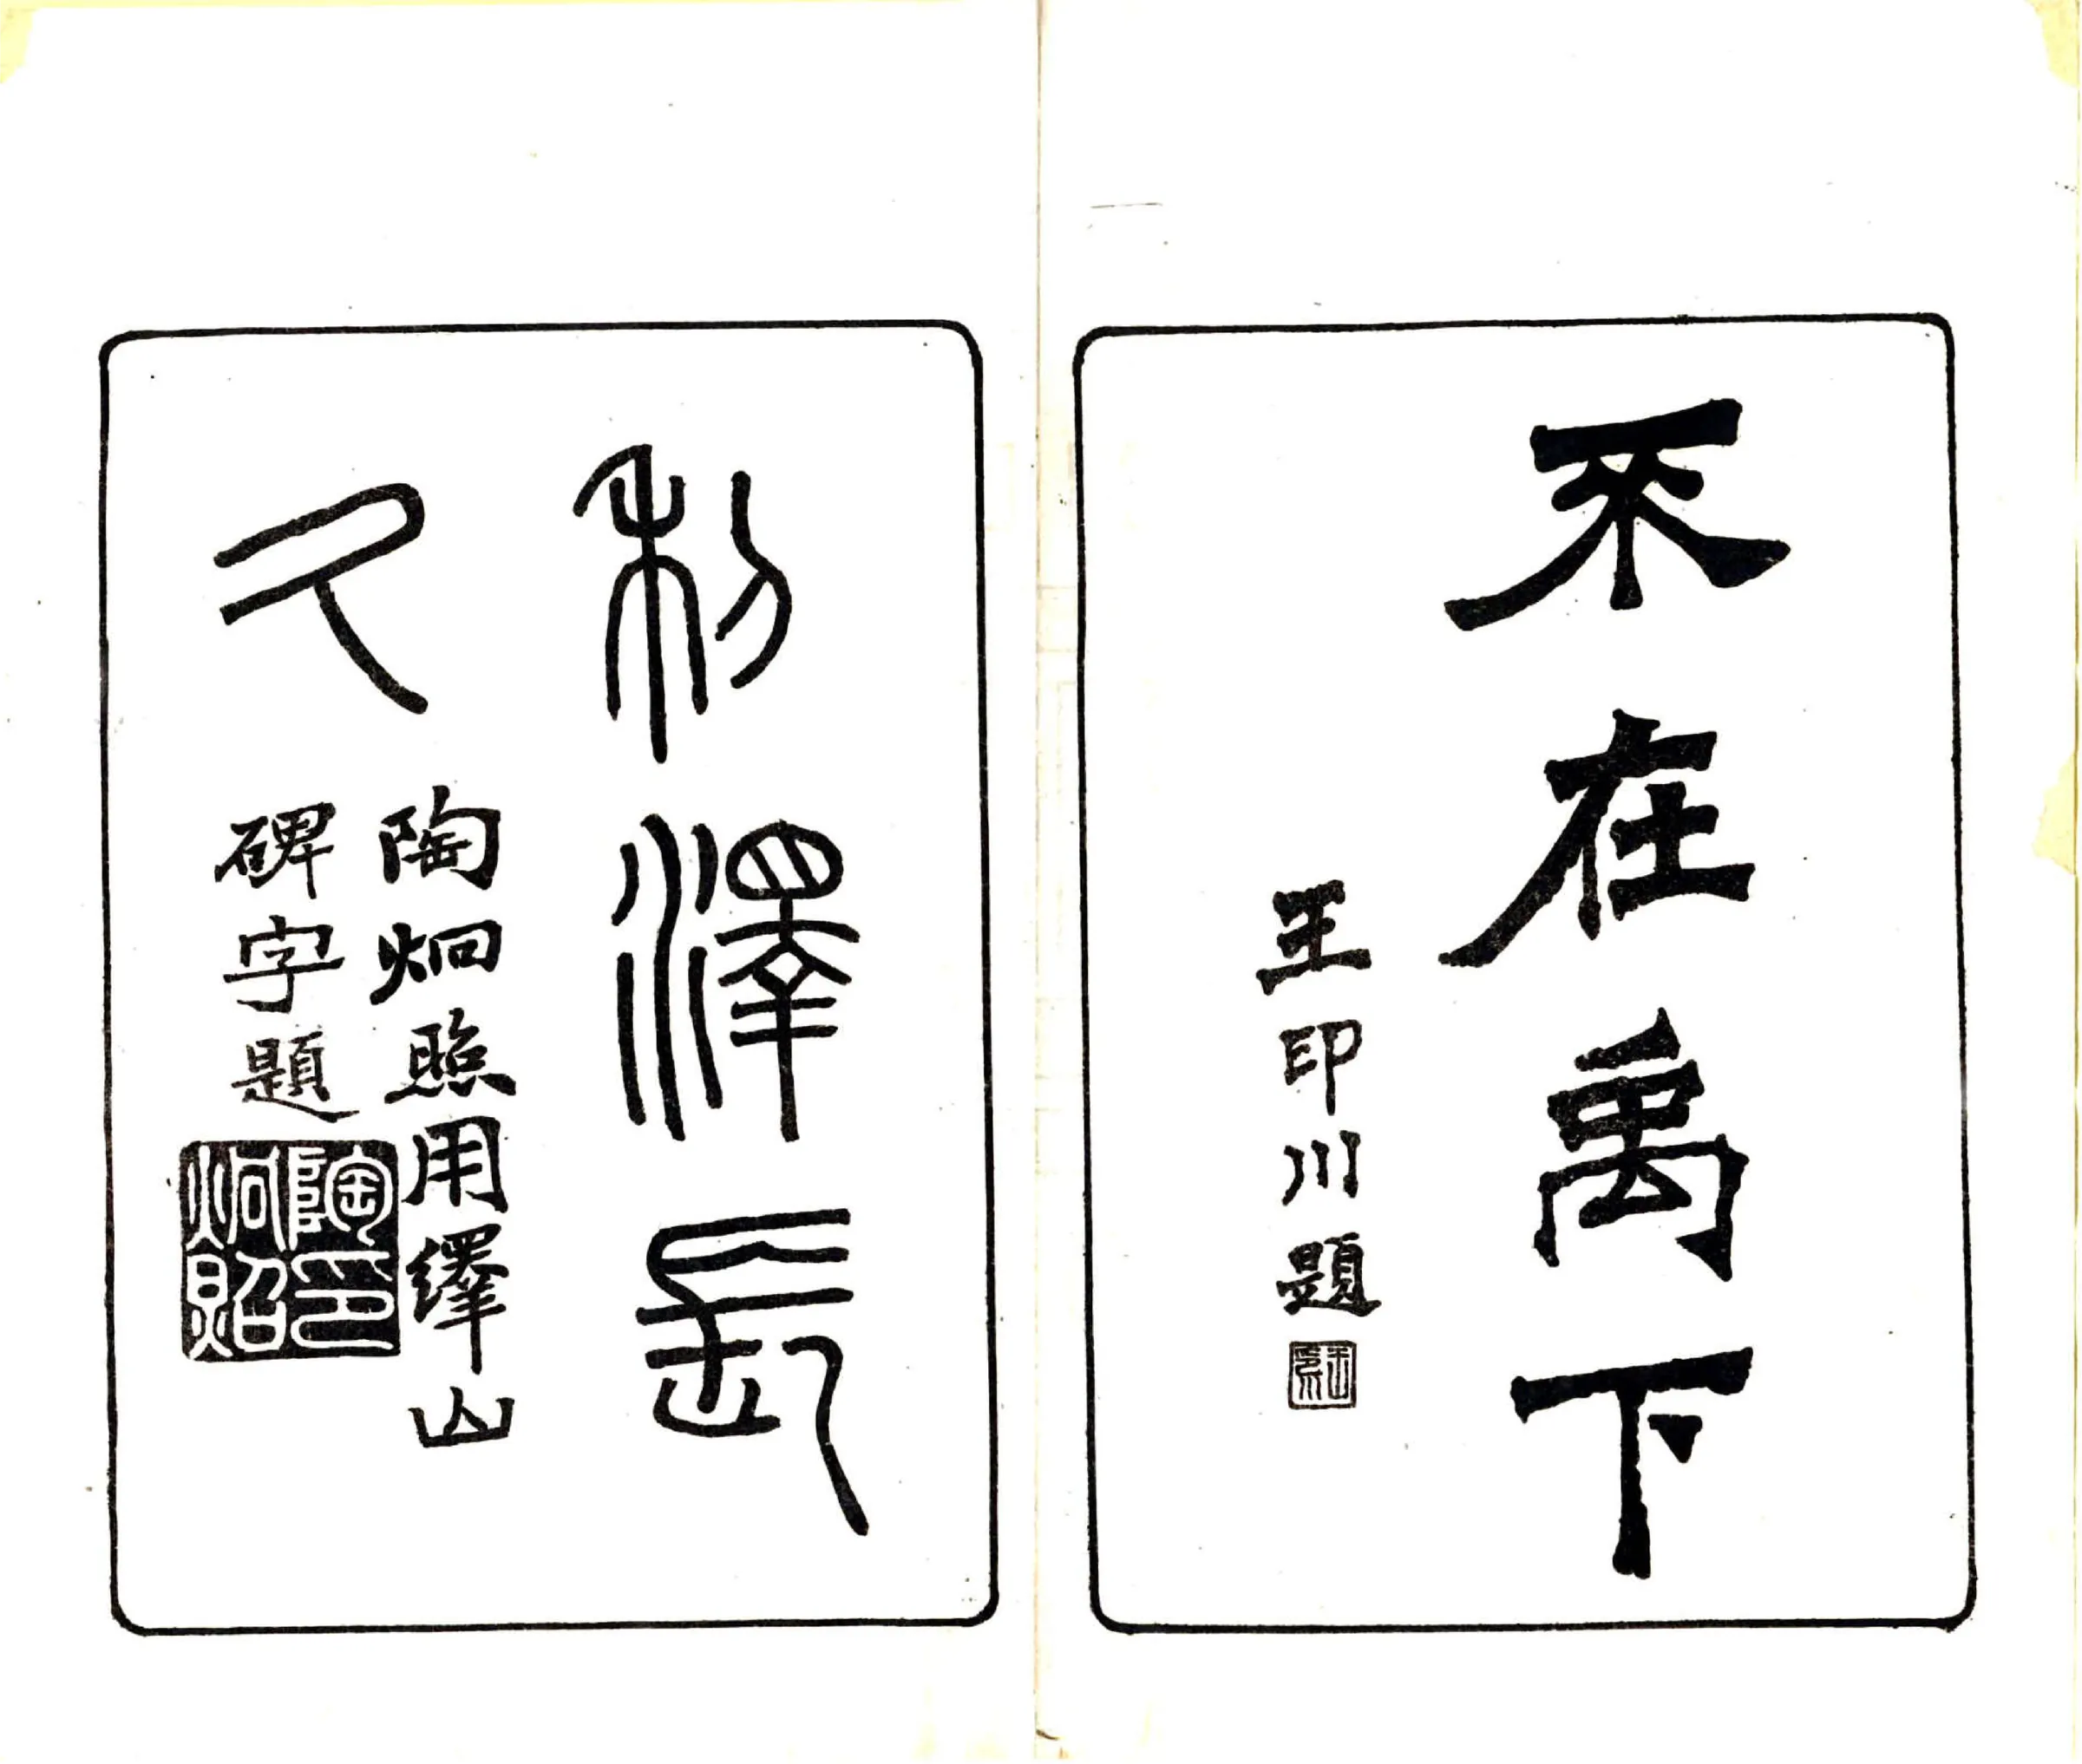 不在禹下
王印川題
利澤長
久
陶炯照用繹山
碑字題
陶炯照印